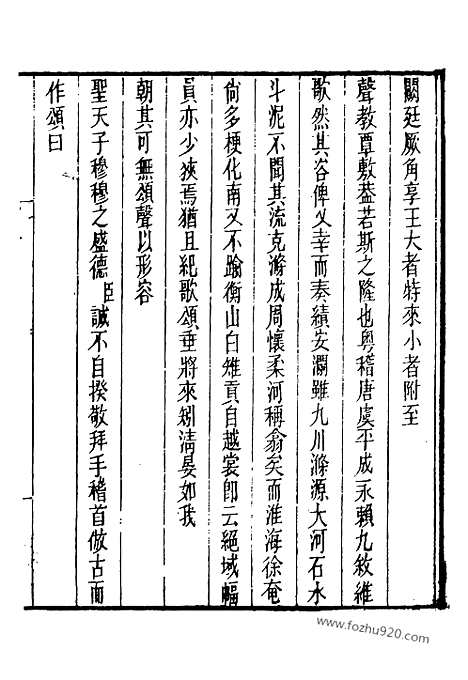 闕廷厥角享王大者特來小者附至
聲教覃敷葢若斯之隆也粤稽唐虞平成永賴九敘維
歌然其咨俾乂幸而奏績安瀾雖九川滌源大河石水
斗泥不聞其流克滌成周懷柔河稱翕矣而淮海徐奄
尙多梗化南又不踰衡山白雉貢自越裳卽云絕域幅
員亦少狹焉猶且紀歌頌垂將來矧淸晏如我
朝其可無頌聲以形容
聖天子穆穆之盛德臣誠不自揆敬拜手稽首倣古而
作頌曰
www.fozhu920.com